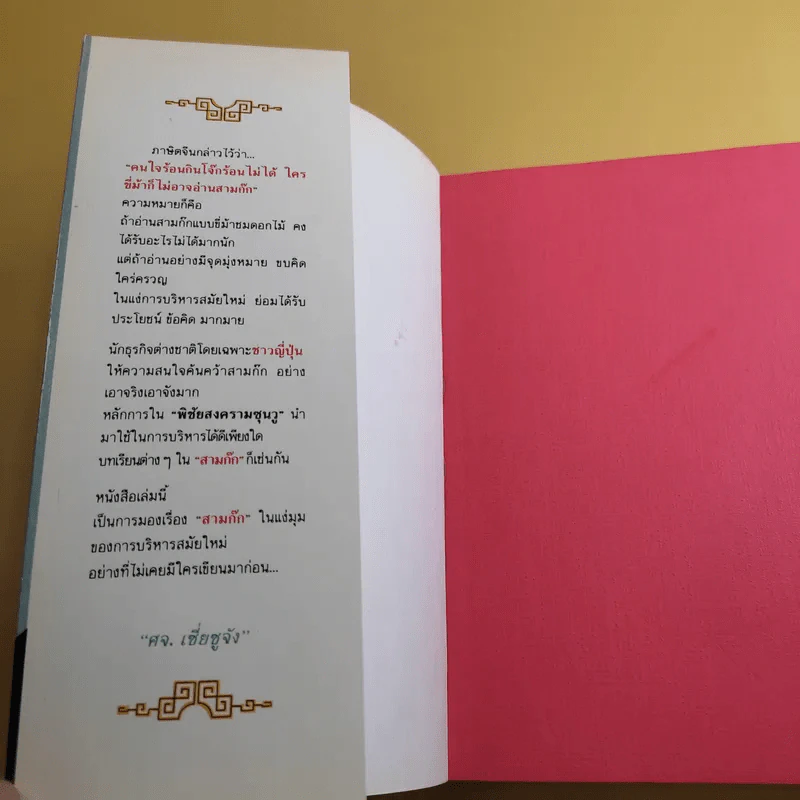 ภาษิตจีนกล่าวไว้ว่า...
"คนใจร้อนกินโจ๊กร้อนไม่ได้ ใคร
ขี่ม้าก็ไม่อาจอ่านสามก๊ก"
ความหมายก็คือ
ถ้าอ่านสามก๊กแบบขี่ม้าชมดอกไม้ คง
ได้รับอะไรไม่ได้มากนัก
แต่ถ้าอ่านอย่างมีจุดมุ่งหมาย ขบคิด
ใคร่ครวญ
ในแง่การบริหารสมัยใหม่ ย่อมได้รับ
ประโยชน์ ข้อคิด มากมาย
นักธุรกิจต่างชาติโดยเฉพาะชาวญี่ปุ่น
ให้ความสนใจค้นคว้าสามก๊ก อย่าง
เอาจริงเอาจังมาก
หลักการใน "พิชัยสงครามซุนวู" นำ
มาใช้ในการบริหารได้ดีเพียงใด
บทเรียนต่างๆ ใน "สามก๊ก" ก็เช่นกัน
หนังสือเล่มนี้
เป็นการมองเรื่อง "สามก๊ก" ในแง่มุม
ของการบริหารสมัยใหม่
อย่างที่ไม่เคยมีใครเขียนมาก่อน...
"ศจ. เซี่ยซูจัง"